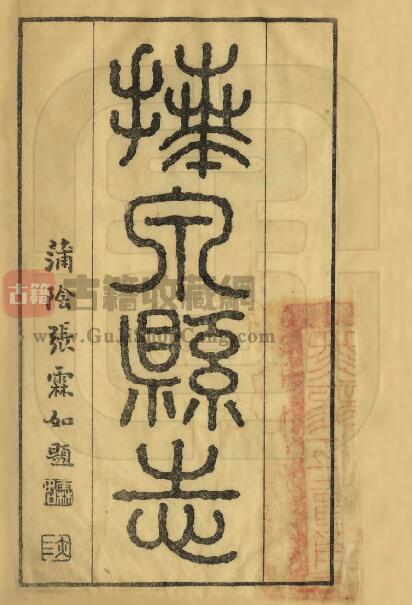 拜泉縣志
蒲陰張霖如題
古籍
古籍收藏網
www.GujiShouCang.com